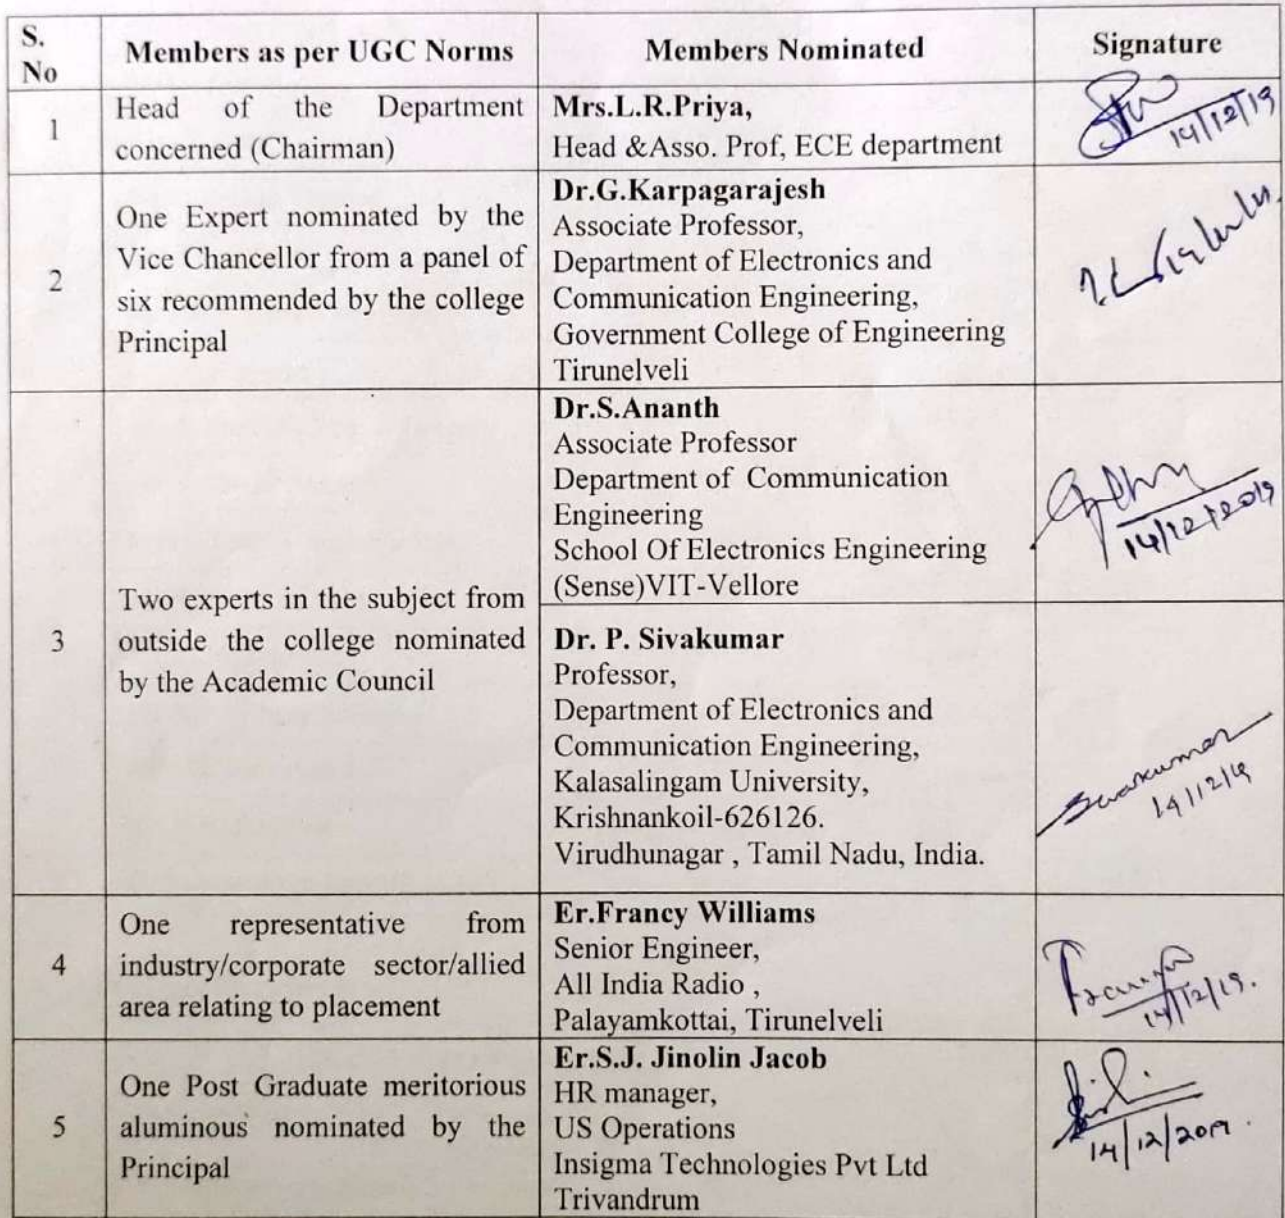 S. No
Members as per UGC Norms
Members Nominated
Signature
1
Head of the Department
concerned (Chairman)
Mrs.L.R.Priya,
Head &Asso. Prof, ECE department
14/12/19
2
One Expert nominated by the
Vice Chancellor from a panel of
six recommended by the college
Principal
Dr.G.Karpagarajesh
Associate Professor,
Department of Electronics and
Communication Engineering,
Government College of Engineering
Tirunelveli
3
Two experts in the subject from
outside the college nominated
by the Academic Council
Dr.S.Ananth
Associate Professor
Department of Communication
Engineering
School Of Electronics Engineering
(Sense)VIT-Vellore
14/12/2019
Dr. P. Sivakumar
Professor,
Department of Electronics and
Communication Engineering,
Kalasalingam University,
Krishnankoil-626126.
Virudhunagar , Tamil Nadu, India.
Sivakumar
14/12/19
4
One representative from
industry/corporate sector/allied
area relating to placement
Er.Francy Williams
Senior Engineer,
All India Radio ,
Palayamkottai, Tirunelveli
14/12/19.
5
One Post Graduate meritorious
aluminous nominated by the
Principal
Er.S.J. Jinolin Jacob
HR manager,
US Operations
Insigma Technologies Pvt Ltd
Trivandrum
14/12/2019.